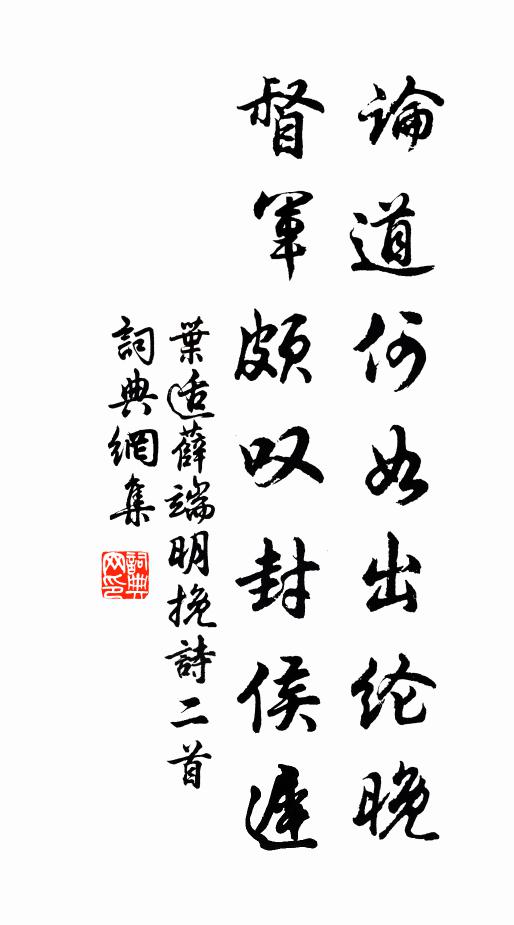 論道何如出纶晚
督軍頗叹封侯遲
葉适薛端明挽詩二首
詞典網集
詞典网印